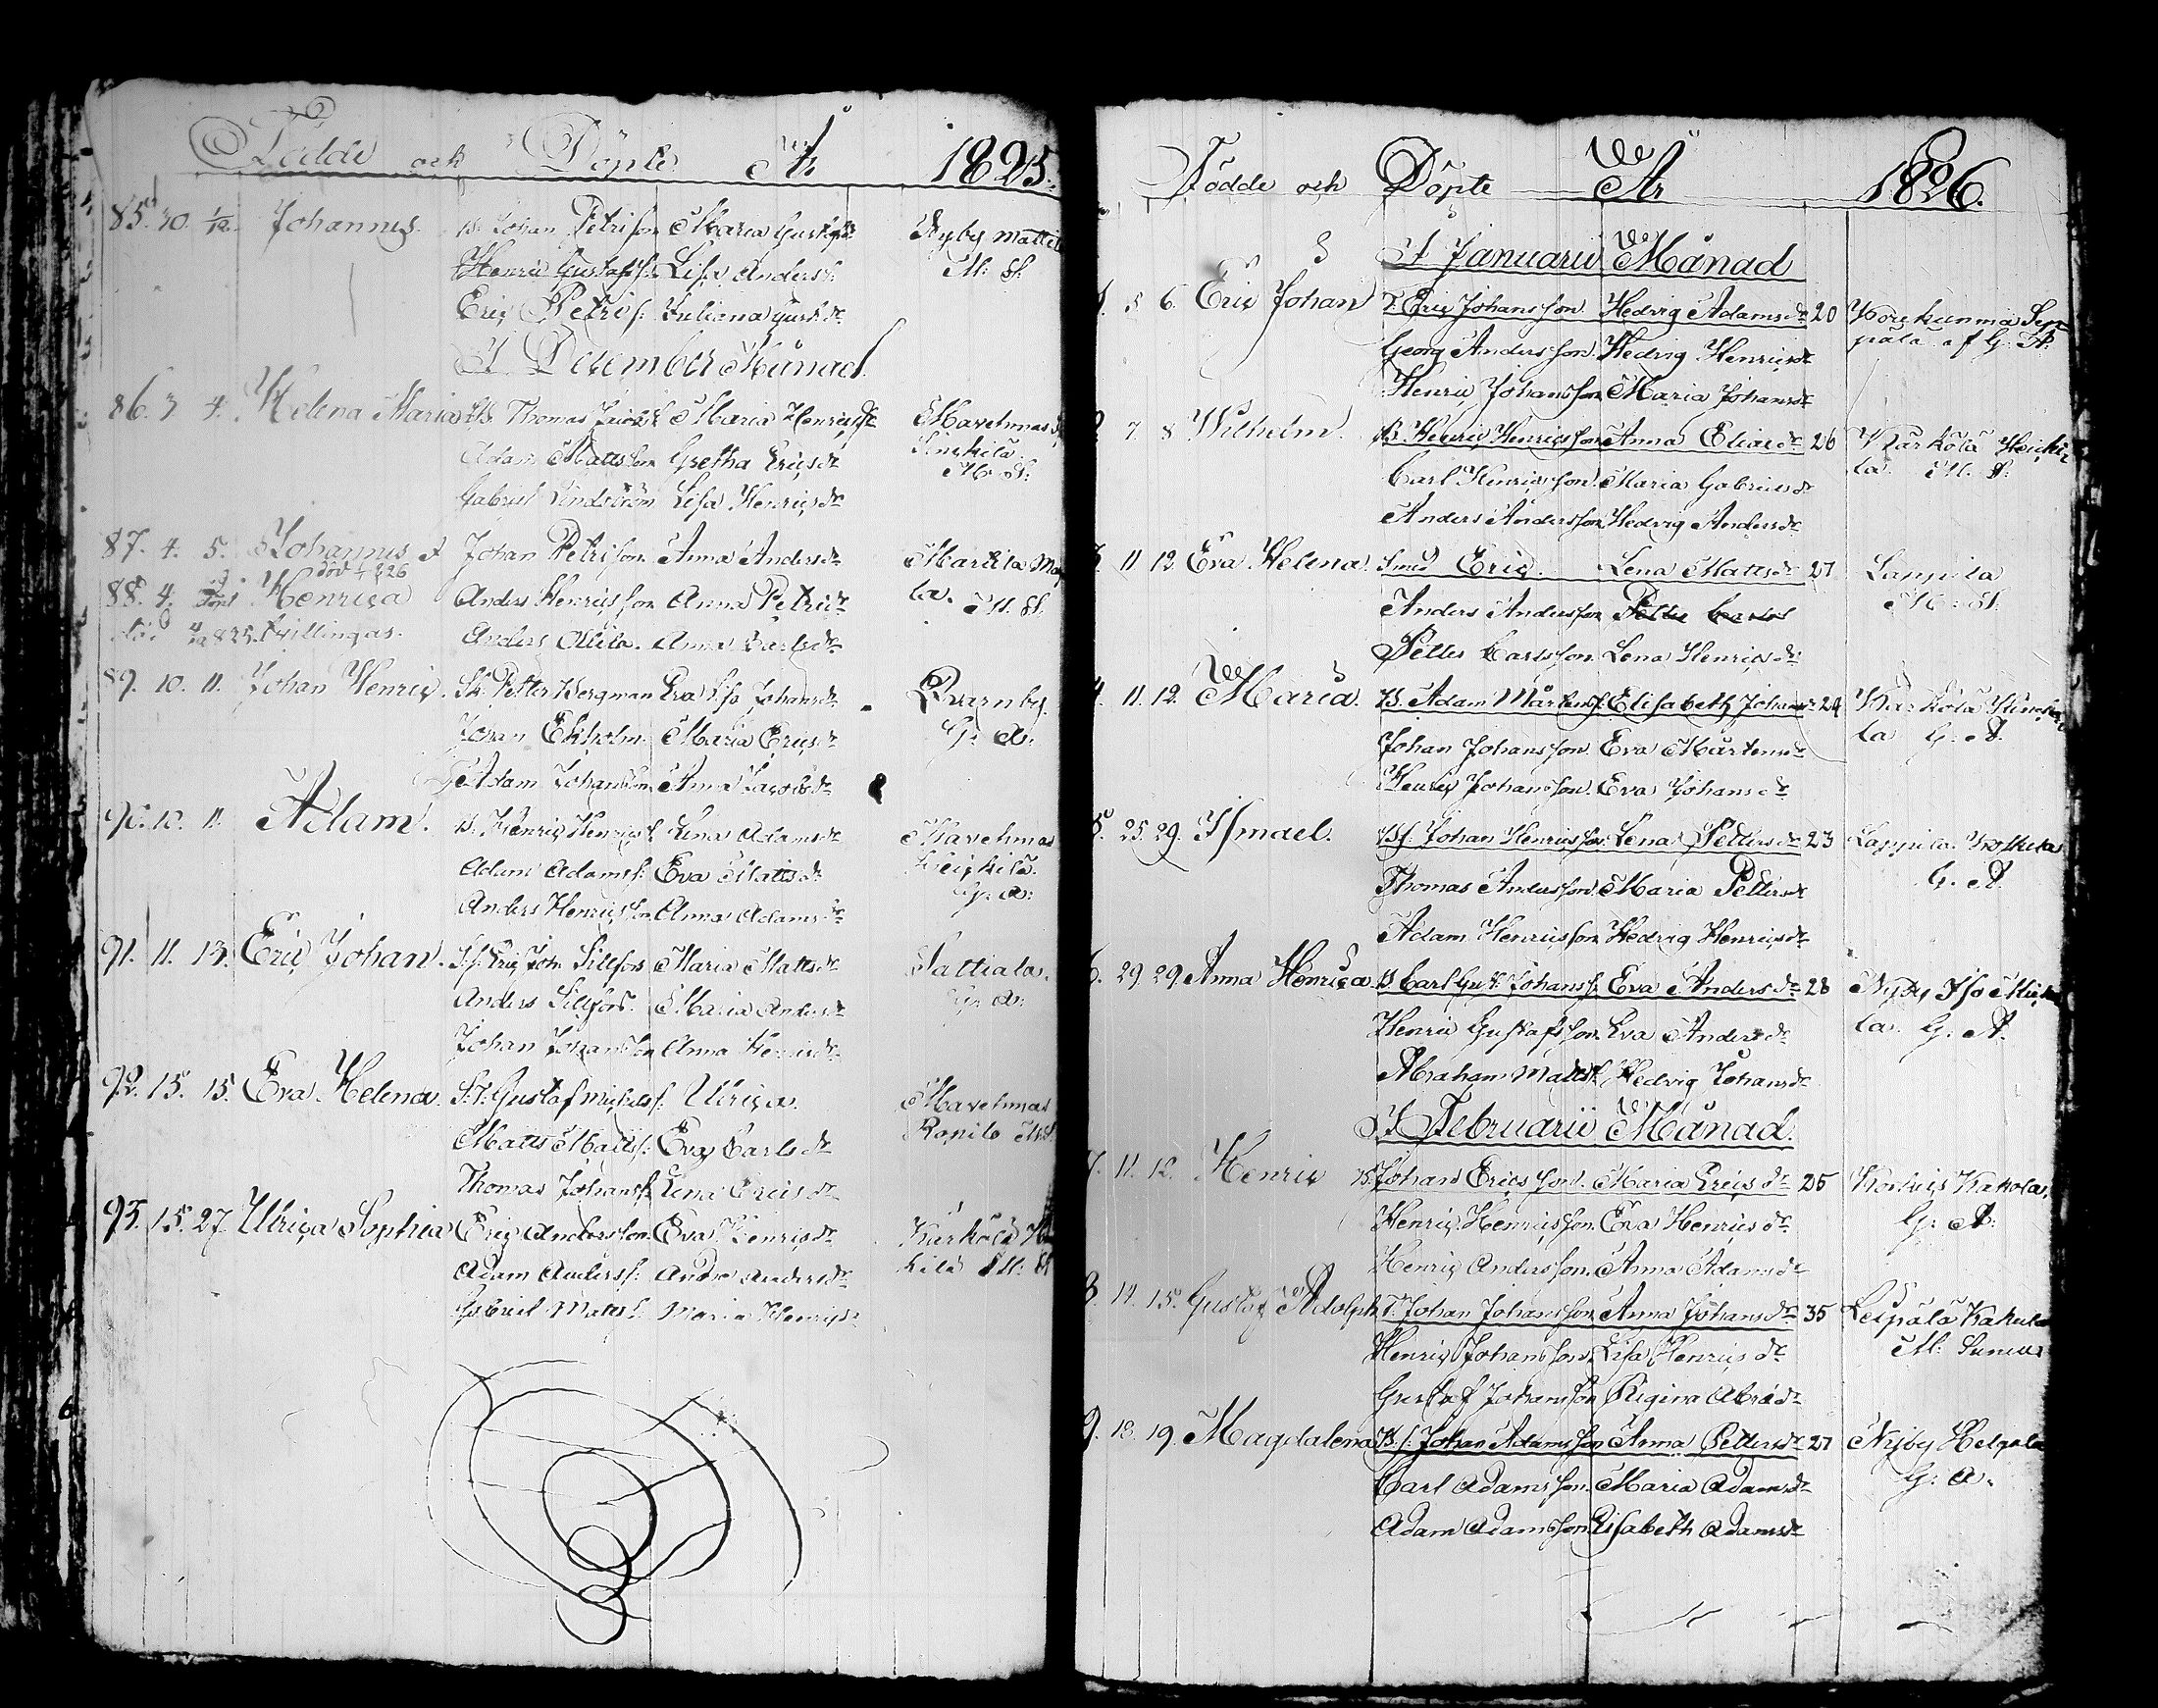 Födde och Döpte År 1825.
85. 30. 1/12. Johannes. B. Johan Petrisson Maria Gust.dr Nyby Mattila
Henric Gustafss: Lisa Andersd: M: St.
Eric Petris: Juliana Gust.dr
I December Månad.
86. 3 4. Helena Maria Thomas Jacobs: Maria Henricsdr Mavehmas
Adam Mattsson Gretha Ericsdr M. St.
Gabriel Lindström Lisa Henricsdr
87. 4. 5. Johannes Johan Petrisson Anna Andersdr Marttila
död 1826
88. 4. Henrica Anders Henricsson Anna Petridr la. M. St.
död 1825. Tvillingar. Anders Ollila. Anna Carlsdr
89. 10. 11. Johan Henric. Petter Bergman Eva Lisa Johansdr Qvarnby.
Johan Ekholm. Maria Ericsdr G: A:
Adam Johansson Anna Jacobsdr
90. 10. 11. Adam. B. Henric Henrics: Lena Adamsdr Mavehmas
Adam Adams: Eva Mattsdr Heickilä.
Anders Henricsson Anna Adamsdr G: A:
91. 11. 13. Eric Johan. Eric Joh. Sillfors Maria Mattsdr Sattiala.
Anders Sillfors. Maria Andersdr G: A:
Johan Johansson Anna Henricsdr
92. 15. 15. Eva Helena. Gustaf Michels: Ulrica. Mavehmas
Matts Matts: Eva Carlsdr Ronilo M: St.
Thomas Johanss: Lena Ericsdr
93. 15. 27. Ulrica Sophia Eric Andersson. Eva Henricsdr Kärkölä
Adam Anderss: Anna Andersdr kilä M: St
Gabriel Matts: Maria Henricsdr
Födde och Döpte År 1826.
I Januarii Månad
1. 5 6. Eric Johan T. Eric Johansson. Hedvig Adamsdr 20
Georg Andersson. Hedvig Henricsdr pala af G: A:
Henric Johansson Maria Johansdr
2. 7. 8 Wilhelm. B. Henric Henricsson Anna Eliaedr 26 Kärkölä Heicki
Carl Henricsson. Maria Gabrielsdr la. M. St:
Anders Andersson Hedvig Andersdr
3. 11 12. Eva Helena. Smed Eric. Lena Mattsdr 27 Lappila
Anders Andersson Petter Carlss M: St.
Petter Carlsson. Lena Henricsdr
4. 11. 12. Maria. B. Adam Mårtens: Elisabeth Johansdr 24 Kärkölä
Johan Johansson. Eva Mårtensdr la G. A.
Henric Johansson. Eva Johansdr
5. 25. 29. Ismael. Bs: Johan Henricsson. Lena Pettersdr 23 Lappila
Thomas Andersson. Maria Pettersdr G. A.
Adam Henricsson Hedvig Henricsdr
6. 29 29. Anna Henrica B. Carl Gust. Johanss: Eva Andersdr 28 Nyby Iso
Henric Gustafsson. Eva Andersdr la. G. A.
Abraham Matts: Hedvig Johansdr
I Februarii Månad.
7. 11. 12. Henric B. Johan Ericsson. Maria Ericsdr 25 Kakola.
Henric Henricsson. Eva Henricsdr G: A:
Henric Andersson. Anna Adamsdr
8. 14. 15. Gustaf Adolph T. Johan Johansson Anna Johansdr 35 Leipälä
Henric Johansson. Lisa Henricsdr M:
Gustaf Johansson Regina Abradr
9. 18. 19. Magdalena Bs: Johan Adamsson Anna Pettersdr 27 Nyby
Carl Adamsson. Maria Adamsdr G: A.
Adam Adamsson Elisabeth Adamsdr